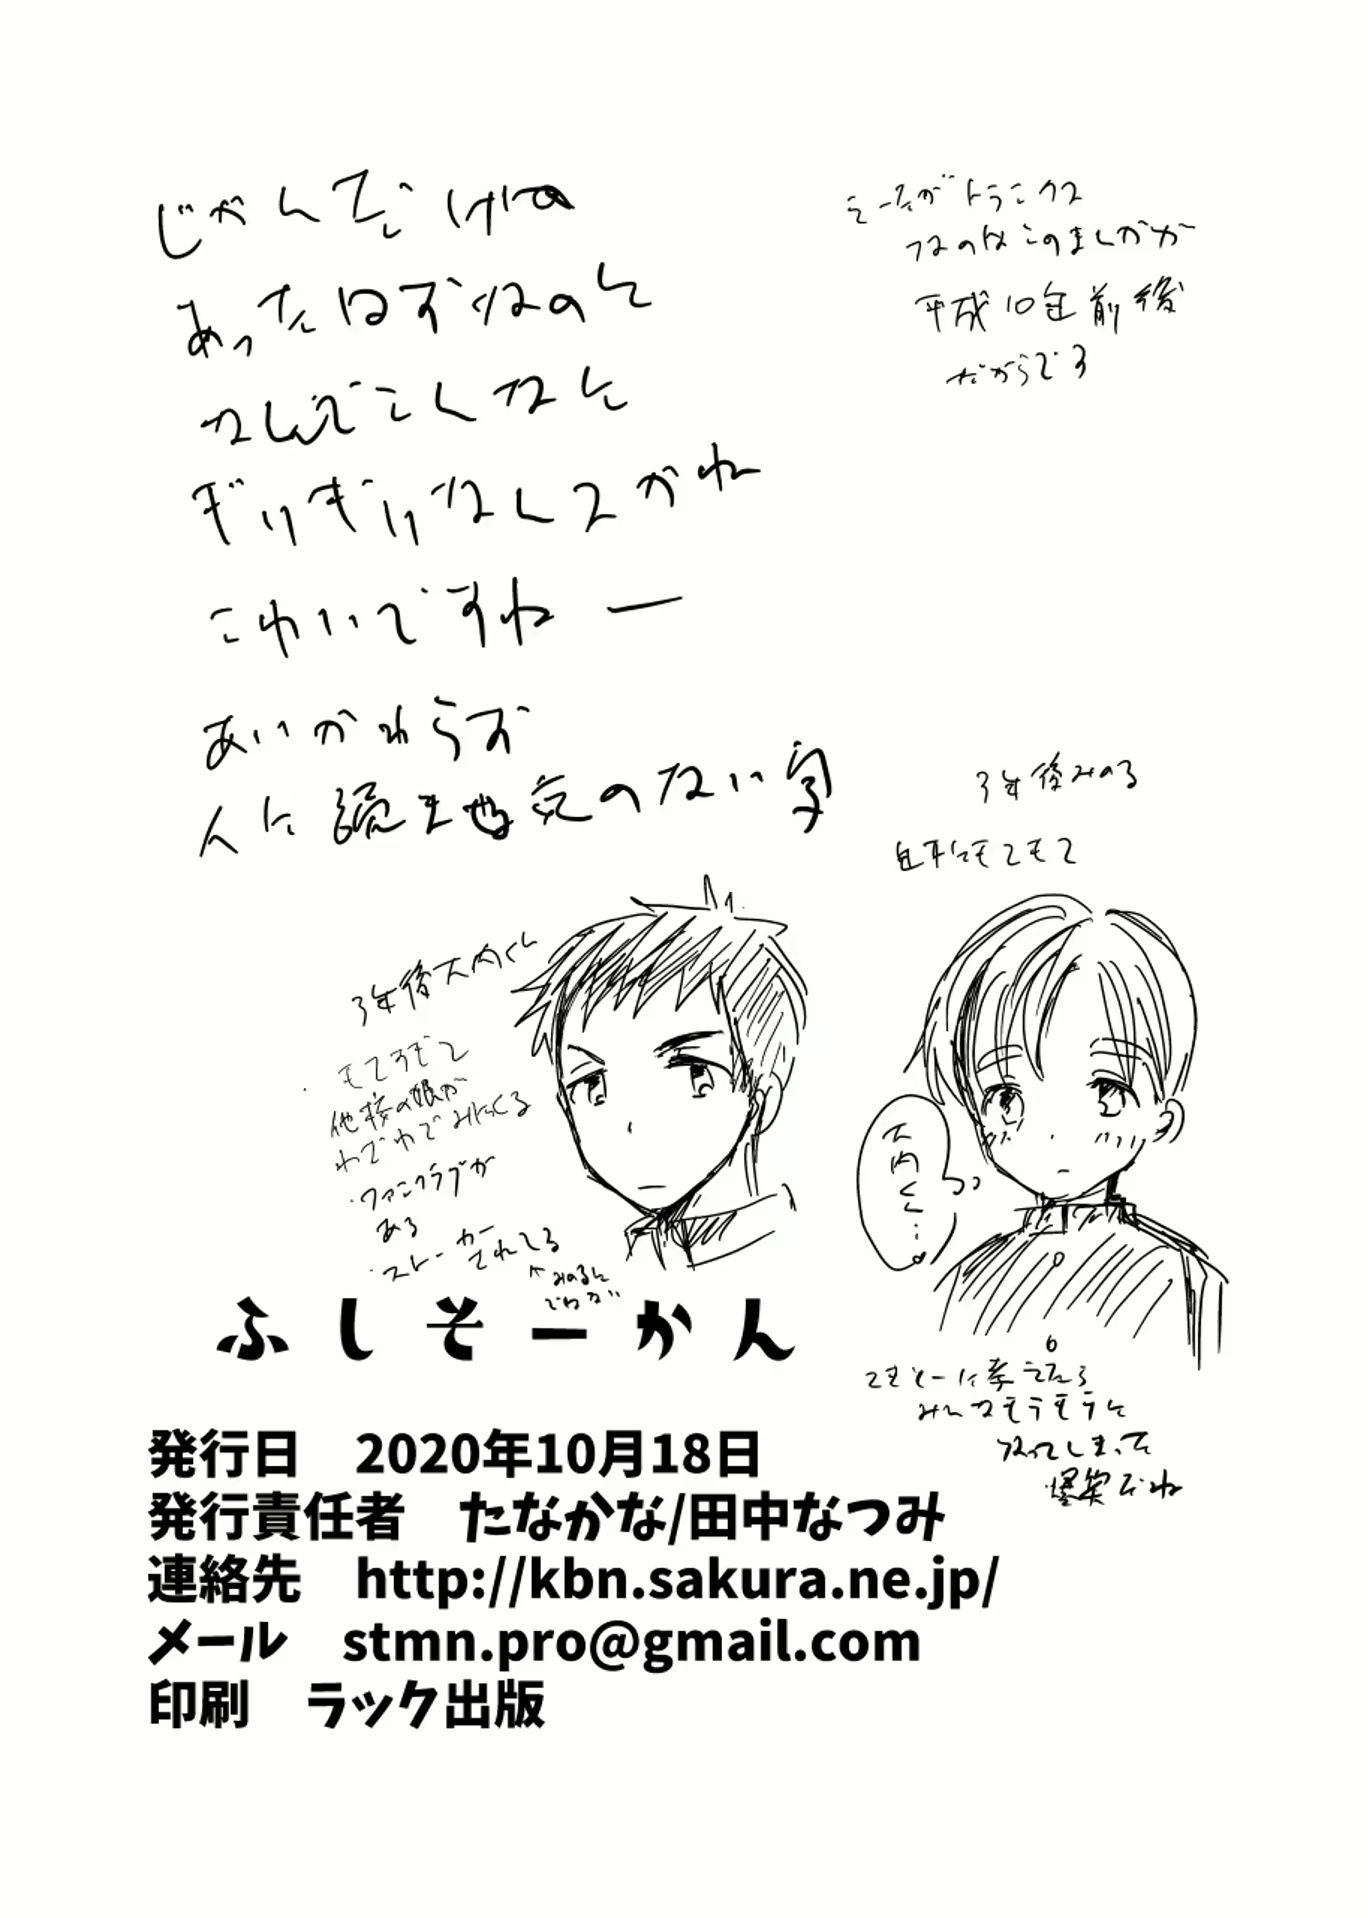 じゃんでぃけの
あったはずなのに
なんでこんなに
ぎりぎりなんスかね
こわいですねー
あいかわらず
人に読ませる気のない字
みーながトランクス
なのはこのまんがが
平成10年前後
だからです
3年後みのる
地味にもてもて
3年後大内くん
・もてすぎて
他校の娘が
わざわざみにくる
・ファンクラブが
ある
・ストーカーされてる
↖みのるに
ではない
大内くん…
ふしそーかん
てきとーに考えたら
みんなモテモテに
なってしまった
爆笑だね
発行日　2020年10月18日
発行責任者　たなかな/田中なつみ
連絡先　http://kbn.sakura.ne.jp/
メール　stmn.pro@gmail.com
印刷　ラック出版